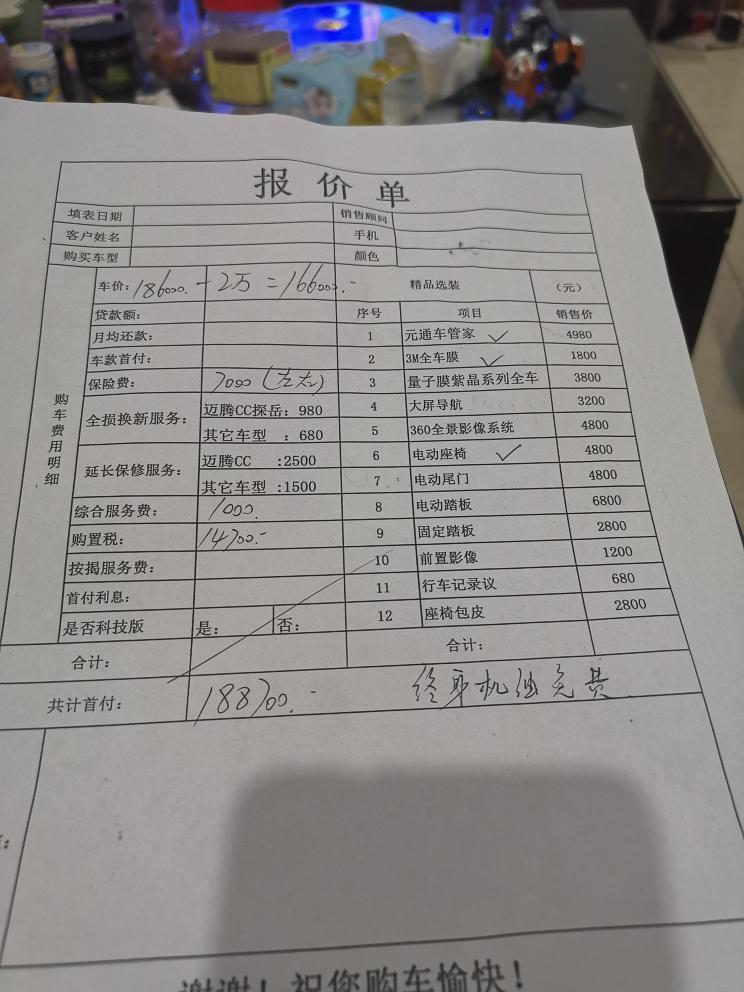 报价单
填表日期 销售顾问
客户姓名 手机
购买车型 颜色
购车费用明细
车价: 186000.- 2万 = 166000.- 精品选装 (元)
贷款额: 序号 项目 销售价
月均还款: 1 元通车管家 ✓ 4980
车款首付: 2 3M全车膜 ✓ 1800
保险费: 7000 3 量子膜紫晶系列全车 3800
全损换新服务: 迈腾CC探岳: 980 4 大屏导航 3200
其它车型 : 680 5 360全景影像系统 4800
延长保修服务: 迈腾CC :2500 6 电动座椅 ✓ 4800
其它车型 :1500 7 电动尾门 4800
综合服务费: 1000. 8 电动踏板 6800
购置税: 14700.- 9 固定踏板 2800
按揭服务费: 10 前置影像 1200
首付利息: 11 行车记录议 680
是否科技版 是: 否: 12 座椅包皮 2800
合计: 合计:
共计首付: 188700.- 终身机油免费
谢谢!祝您购车愉快!